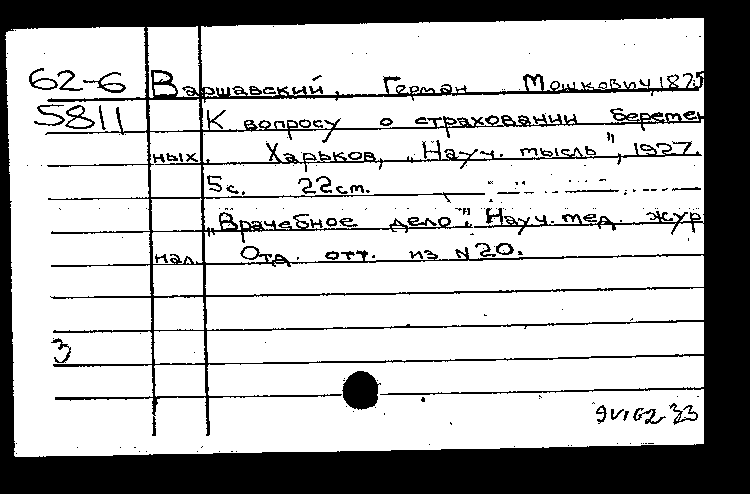 62-6 Варшавский, Герман Мошкович, 1875
5811 К вопросу о страховании беремен
ных. Харьков, „Науч. мысль", 1927.
5с. 22ст.
„Врачебное дело". Науч. мед. жур
нал. Отд. отт. из N 20.
3
9VI62 33